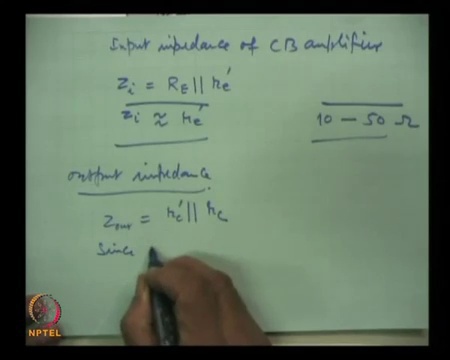 Input impedance of CB amplifier
Zi = RE || re'
Zi ≈ re'
10 – 50 Ω
output impedance
Zout = rc' || rc
Since
NPTEL